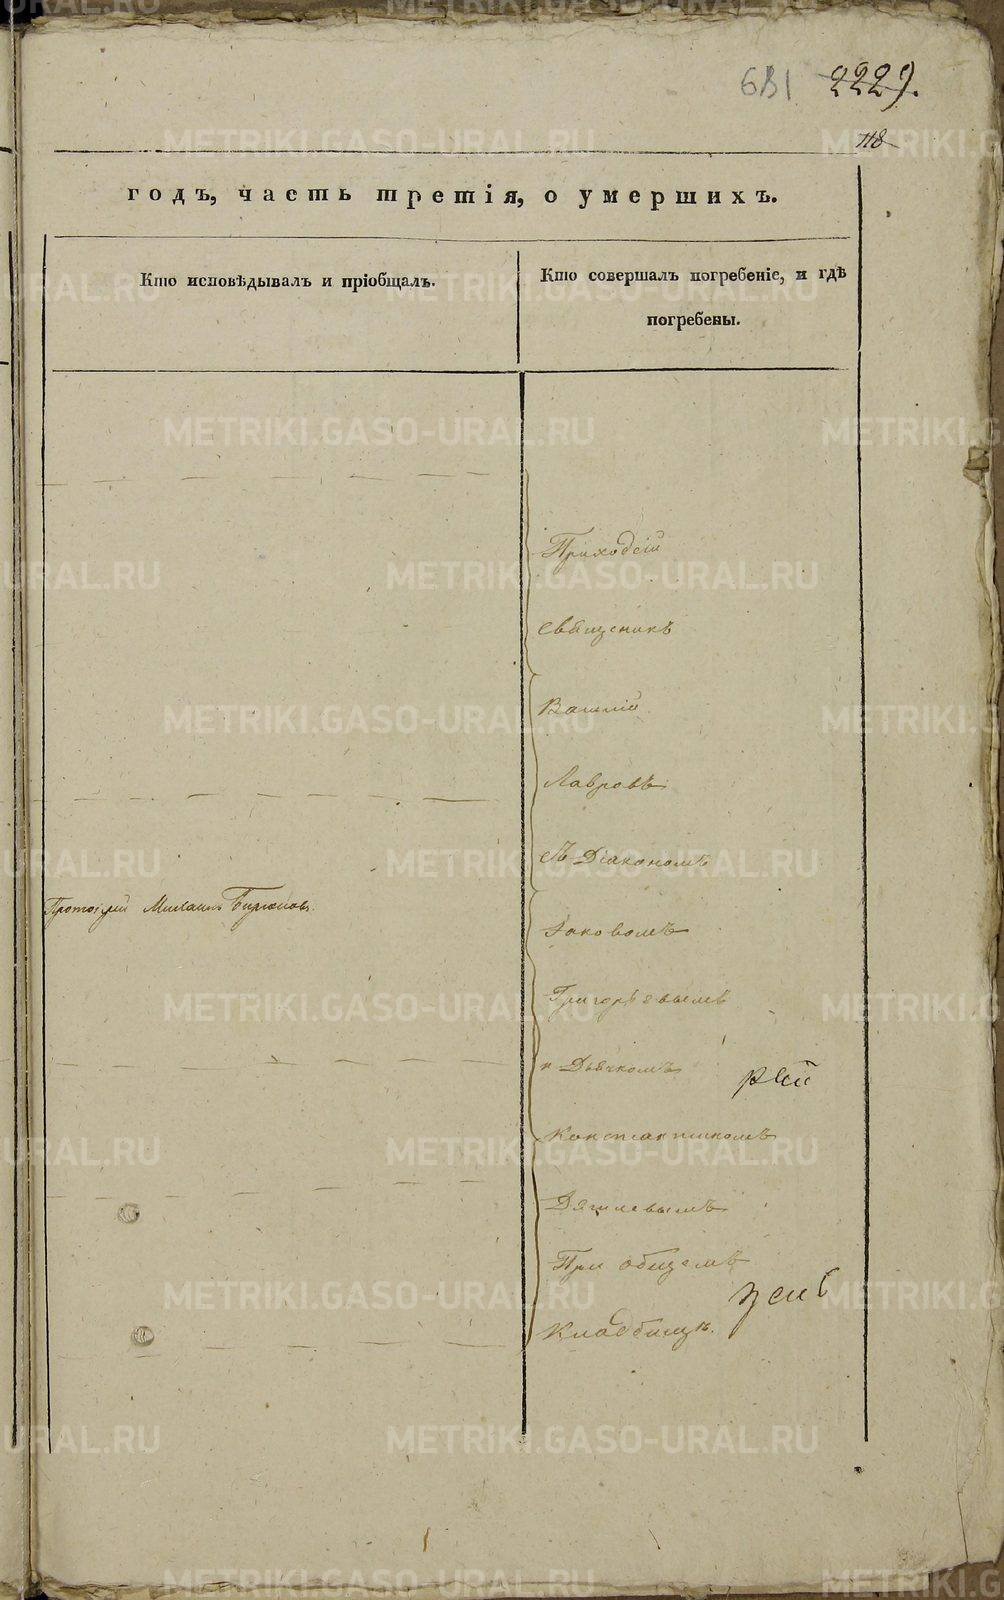 681 2229.
118
годъ, часть третія, о умершихъ.
Кто исповѣдывалъ и пріобщалъ.
Кто совершалъ погребеніе, и гдѣ
погребены.
Приходскій
священникъ
Василій
Лавровъ
съ Діакономъ
Протоіерей Михаилъ Бирюковъ.
Іаковомъ
Григорьевымъ
и Дьячкомъ
Константиномъ
При общемъ
Кладбищѣ.
METRIKI.GASO-URAL.RU